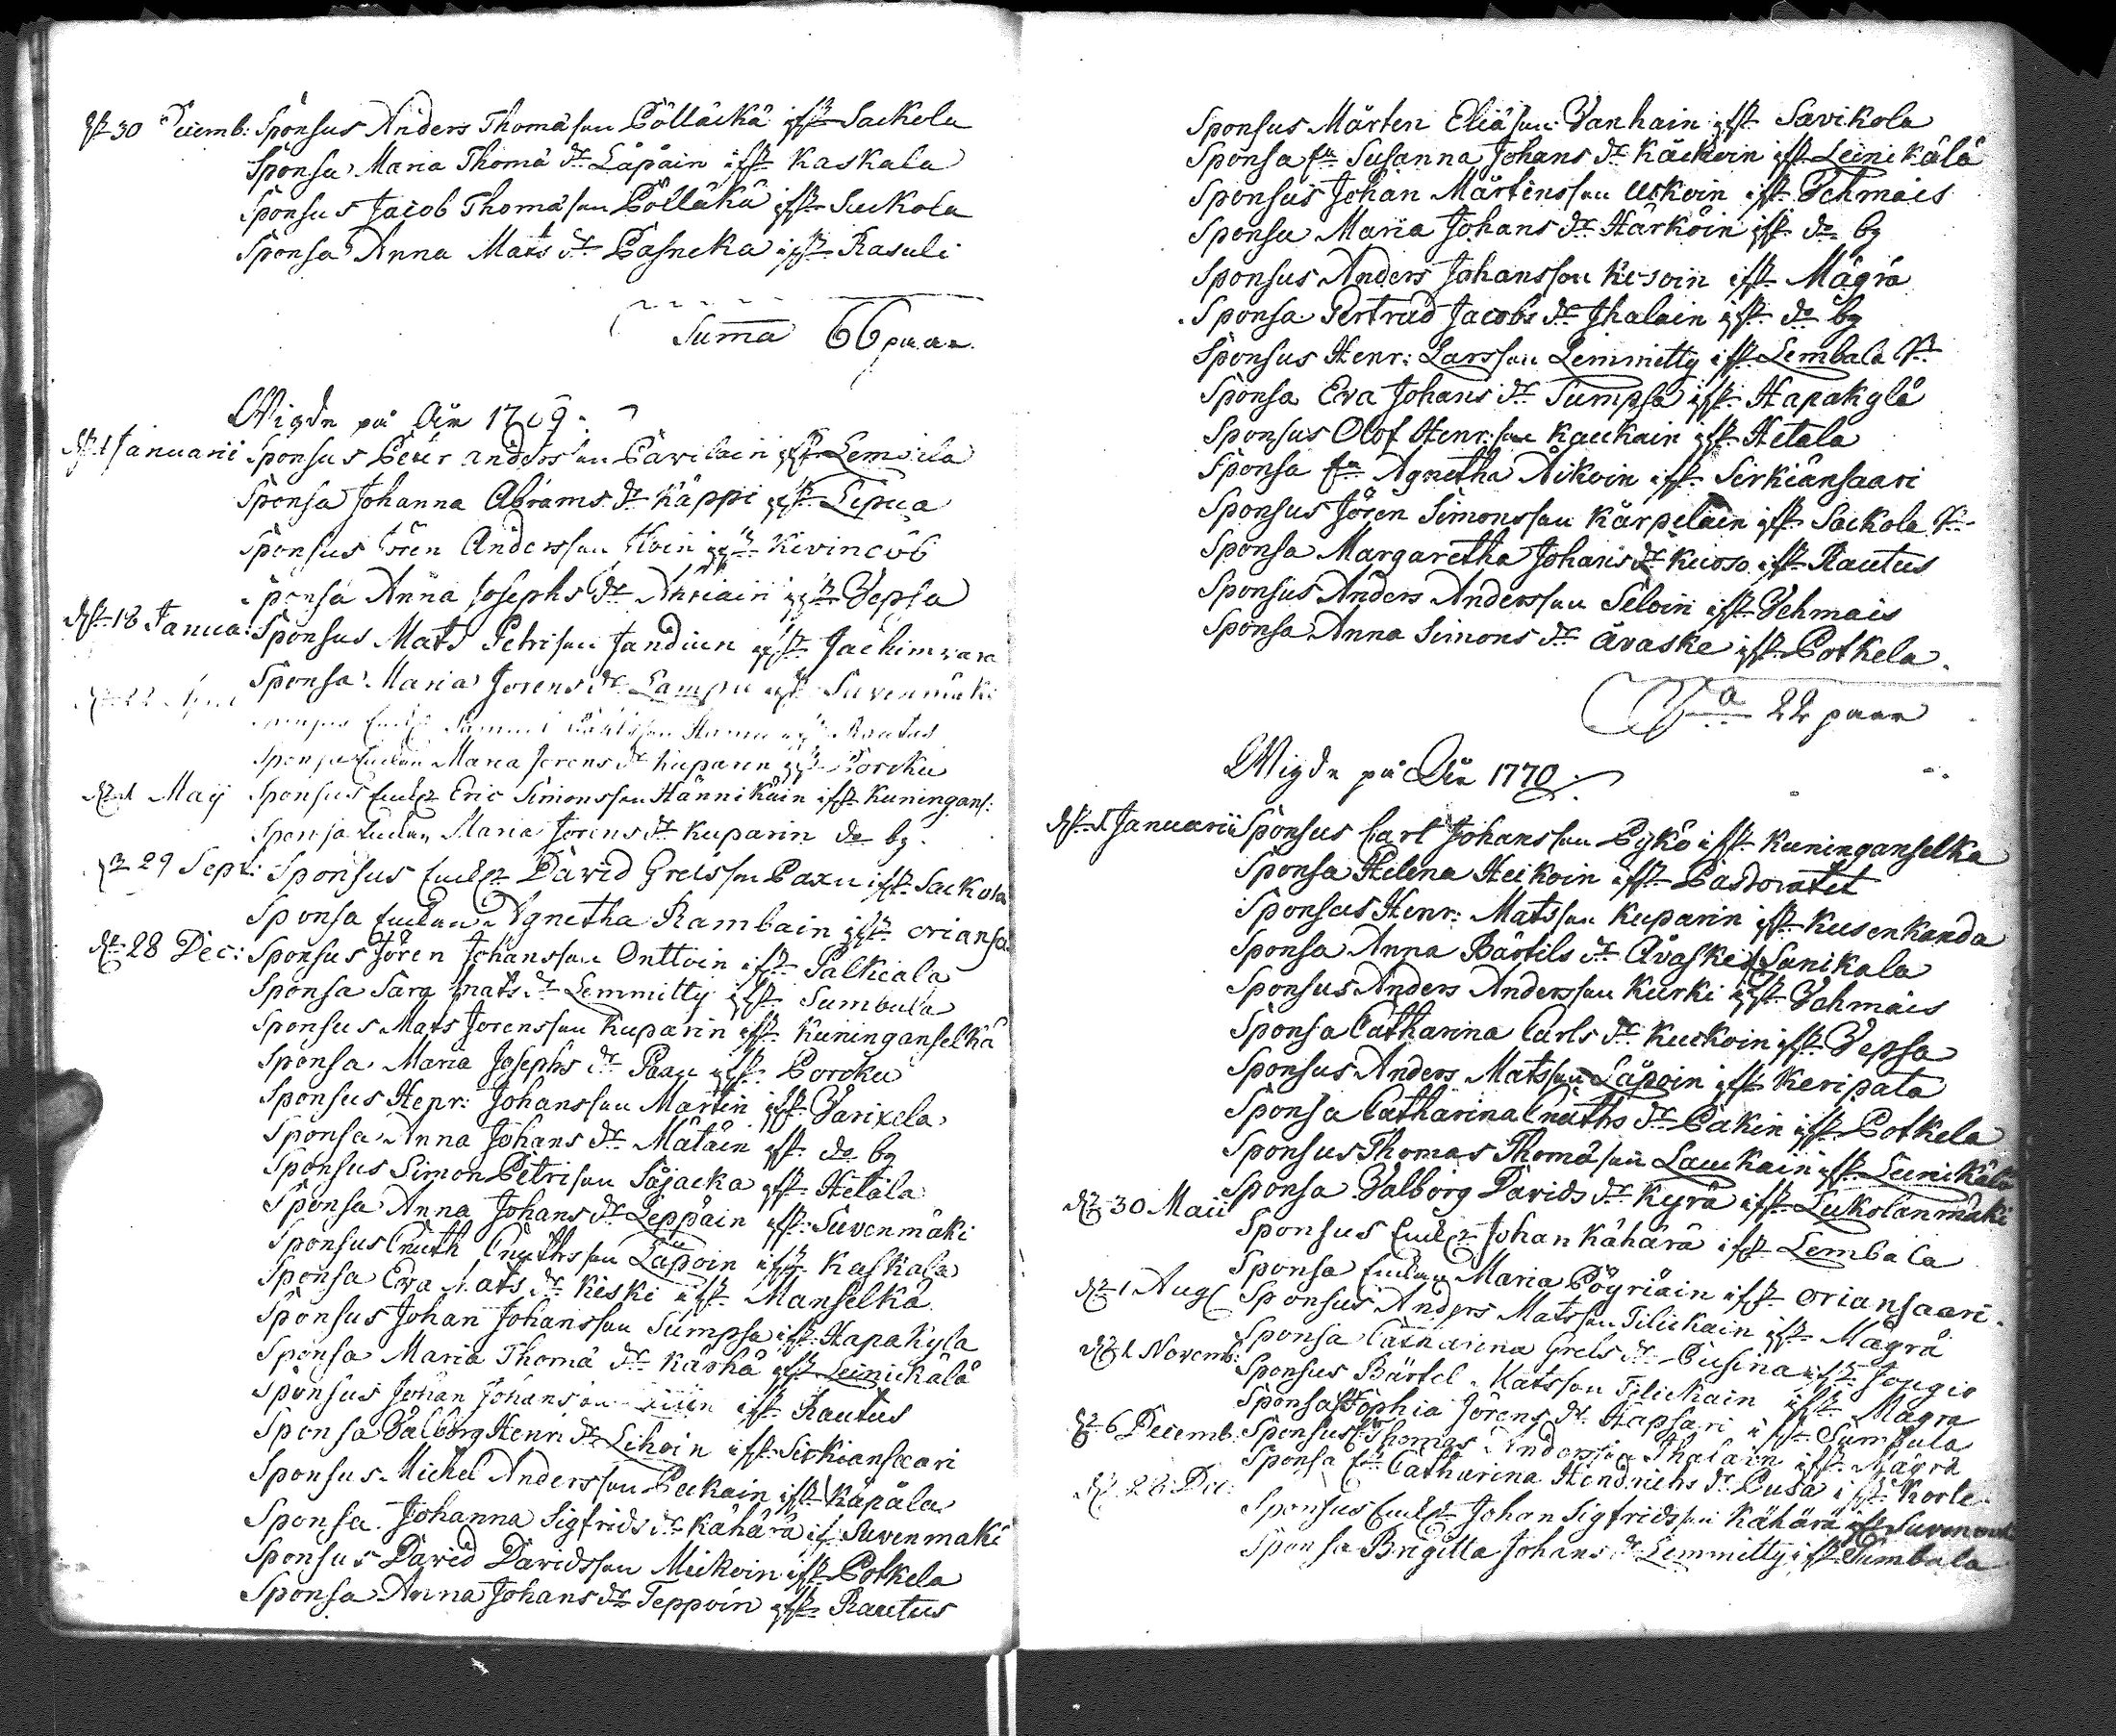 30 Decemb: Sponsus Anders Thomäson Pölläckä ifrån Sackola
Sponsa Maria Thomä dr Läpäin ifrån Kaskala
Sponsus Jacob Thomäson Pölläkä ifrån Suckola
Sponsa Anna Mats dr Pasneka ifrån Rasuli
Suma 66 paar
Wigde på Åhr 1769
d. 1 Januarii Sponsus Petter Andersson Pävilain ifrån Lemoila
Sponsa Johanna Abrams dr Käppi ifrån Lipua
Sponsus Jören Andersson ifrån Kivincob
Sponsa Anna Josephs dr ifrån Vepsa
d. 18 Janua: Sponsus Mats Petrison Jandiun ifrån Jachimvara
Sponsa Maria Jorens dr Lampu ifrån Suvenmäki
22
Rautus
Sponsa Enckan Maria Jorens dr Kuparin ifrån Porcku
d. 1 Maij Sponsus Enckl. Eric Simonsson Hännikäin ifrån Kuningans:
Sponsa Enckan Maria Jorens dr Kuparin do by.
29 Sept: Sponsus Enckl. David Grelsson Paxu ifrån Sackola
Sponsa Enckan Agnetha Rambain ifrån Oriansa
d. 28 Dec: Sponsus Jören Johansson Onttoin ifrån Palkeala
Sponsa Sara Mats dr Lemmitty ifrån Sumbula
Sponsus Mats Jorensson Kuparin ifrån Kuninganselkä
Sponsa Maria Josephs dr Paxu ifrån Porcku
Sponsus Henr: Johansson Martin ifrån Varixela
Sponsa Anna Johans dr Mätäin ifrån do by
Sponsus Simon Petrison Säjacka ifrån Hetala
Sponsa Anna Johans dr Leppäin ifrån Suvenmäki
Sponsus Cnuth Cnuthsson Läpoin ifrån Kaskala
Sponsa Eva Mats dr Kiski ifrån Manselkä
Sponsus Johan Johansson Sumpsa ifrån Hapakyla
Sponsa Maria Thomä dr Kärhä ifrån Leinickälä
Sponsus Johan Johans ifrån Rautus
Sponsa Valborg Henri dr Lihoin ifrån Sirkiansaari
Sponsus Michel Andersson Peckain ifrån Käpäla
Sponsa Johanna Sigfrids dr Kähärä if. Suvenmaki
Sponsus David Davidsson Mickoin ifrån Potkela
Sponsa Anna Johans dr Teppoin ifrån Rautus
Sponsus Mårten Eliäson Vanhain ifrån Savikola
Sponsa fru Susanna Johans dr Käckoin ifrån Leinikälä
Sponsus Johan Mårtensson Uckoin ifrån Vehmais
Sponsa Maria Johans dr Härköin ifrån do by
Sponsus Anders Johansson Kesoin ifrån Mägrä
Sponsa Gertrud Jacobs dr Jhalain ifrån do by
Sponsus Henr: Larsson Lemmitty ifrån Lembala
Sponsa Eva Johans dr Sumpsa ifrån Hapakylä
Sponsus Olof Henr:son Kauckain ifrån Hetala
Sponsa fru Agnetha Äikoin ifrån Sirkiänsaari
Sponsus Jören Simonsson Kärpeläen ifrån Sackola
Sponsa Margaretha Johans dr Kuoso ifrån Rautus
Sponsus Anders Andersson Seloin ifrån Vehmais
Sponsa Anna Simons dr Ävaske ifrån Potkela.
Sa 22 paar
Wigde på Åhr 1770
d. 1 Januarii Sponsus Carl Johansson Pykö ifrån Kuninganselka
Sponsa Helena Heikoin ifrån Pastoratet
Sponsus Henr: Matsson Kuparin ifrån Kusenkanda
Sponsa Anna Bärtils dr Ävaske if Sunikala
Sponsus Anders Andersson Kurki ifrån Vehmais
Sponsa Catharina Carls dr Kuckoin ifrån Vepsa
Sponsus Anders Matsson Läpoin ifrån Keripata
Sponsa Catharina Cnuths dr Päkin ifrån Potkela
Sponsus Thomas Thomäson Lauckain ifrån Leinikälä
Sponsa Valborg Davids dr Kyrä ifrån Luckolanmäki
d. 30 Maii Sponsus Enckl. Johan Kähärä ifrån Lembala
Sponsa Enckan Maria Pögriäin ifrån Oriansaari.
d. 1 Aug Sponsus Anders Matsson Tilickain ifrån Mägrä
Sponsa Catharina Grels dr Pusina ifrån Jougio
d. 1 Novemb: Sponsus Bärtel Matsson Tilickain ifrån Magra
Sponsa Sophia Jörens dr Hapsari ifrån Sumbula
d. 6 Decemb: Sponsus Thomas Andersson Jhalain ifrån Mägrä
Sponsa fru Catharina Hendrichs dr Pusa ifrån Korle
d. 28 Dec: Sponsus Enckl. Johan Sigfridsson Kähärä ifrån Suvenmä
Sponsa Brigitta Johans dr Lemmitty ifrån Sumbula